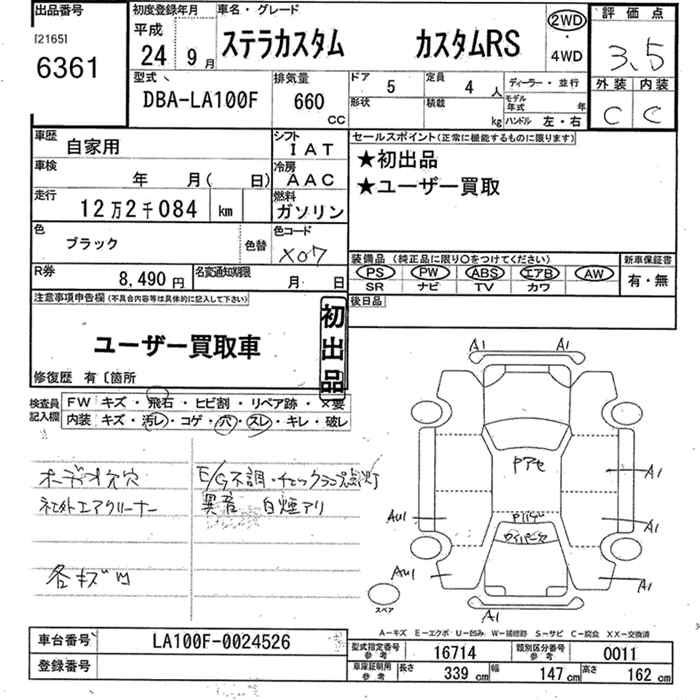 出品番号
[2165]
6361
初度登録年月
平成
24年 9月
車名・グレード
ステラカスタム カスタムRS
2WD
・
4WD
評価点
3.5
外装 内装
C C
型式
DBA-LA100F
排気量
660
CC
ドア 5
定員 4人
形状
積載 kg
ディーラー・並行
モデル年式 年
ハンドル 左・右
車歴 自家用
シフト IAT
車検 年 月( 日)
冷房 AAC
走行 12万2千084 km
燃料 ガソリン
色 ブラック
色替
色コード X07
R券 8,490円
名変通知期限 月 日
セールスポイント(正常に機能するものに限ります)
★初出品
★ユーザー買取
装備品(純正品に限り○をつけてください)
PS PW ABS エアB AW
SR ナビ TV カワ
新車保証書
有・無
後日品
注意事項申告欄(不具合内容等は具体的に記入して下さい)
ユーザー買取車
初出品
修復歴 有〔箇所
検査員記入欄
FW キズ・飛石・ヒビ割・リペア跡・×要
内装 キズ・汚レ・コゲ・穴・スレ・キレ・破レ
オーディオ欠穴
社外エアクリーナー
各キズU
E/G不調・チェックランプ点灯
異音 白煙アリ
A1 A1
Pアセ
A1
AU1
Pバゲ
ワイパー欠
A1
AU1
A1
A1
スペア
A-キズ E-エクボ U-凹み W-補修跡 S-サビ C-腐食 XX-交換済
車台番号 LA100F-0024526
登録番号
型式指定番号参考 16714
類別区分番号参考 0011
車庫証明用参考 長さ 339cm 幅 147cm 高さ 162cm